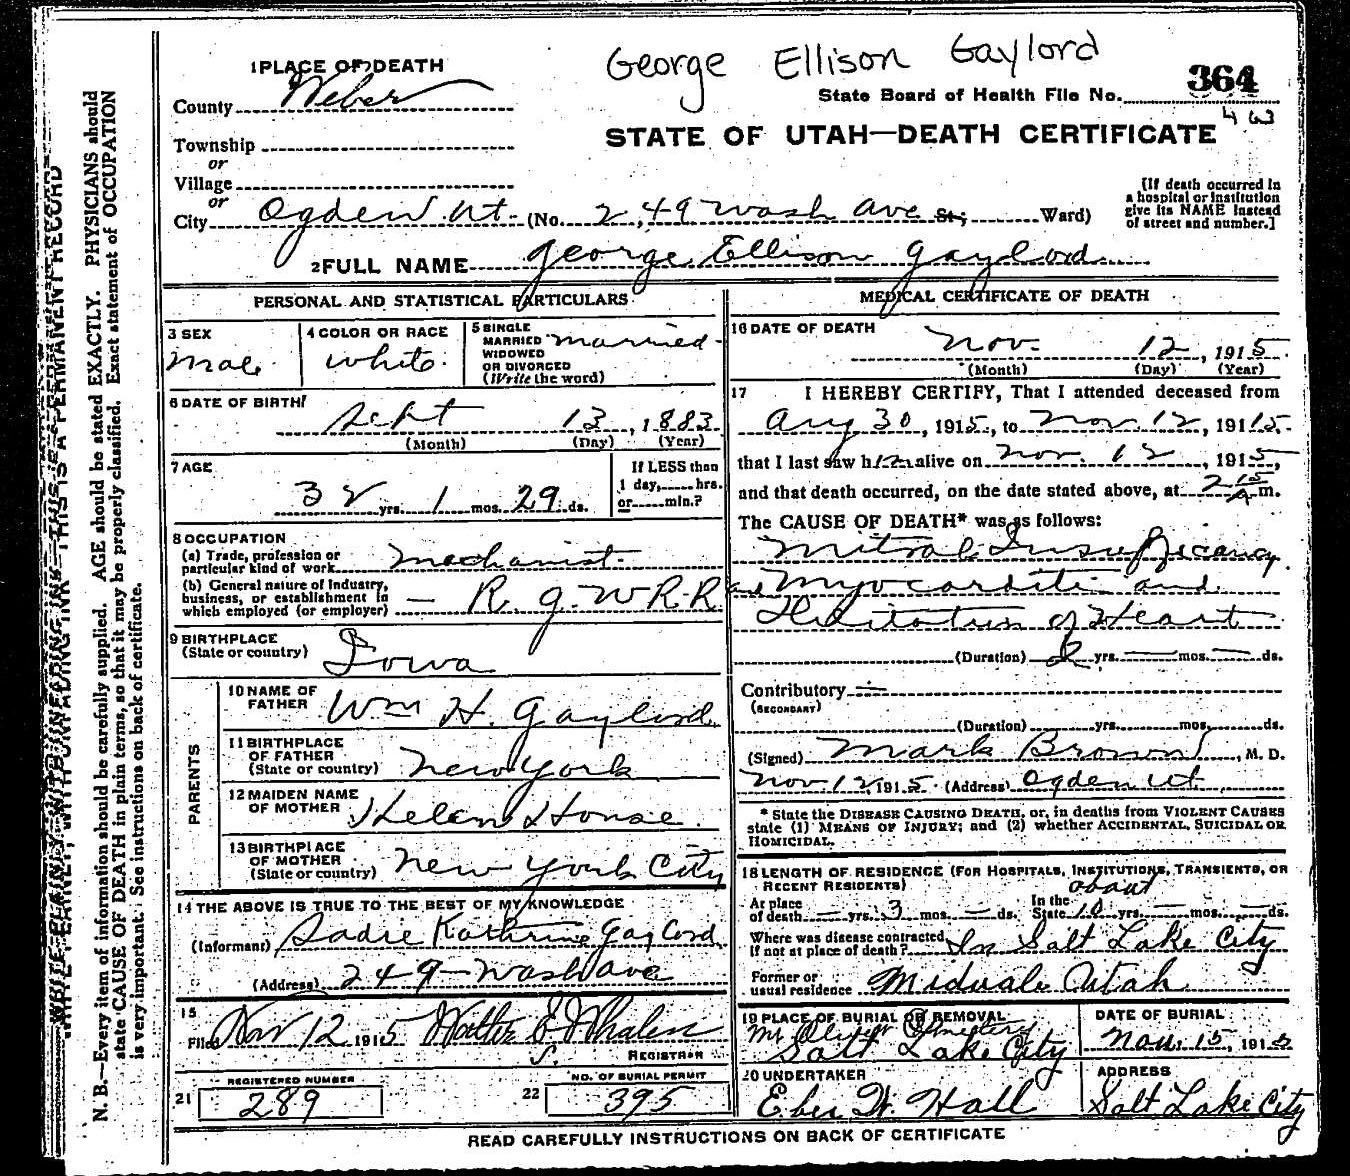 George Ellison Gaylord
364
State Board of Health File No.
STATE OF UTAH—DEATH CERTIFICATE
1 PLACE OF DEATH
County Weber
Township
or
Village
or
City Ogden Ut. (No. 249 Wash Ave St; Ward)
[If death occurred in
a hospital or institution
give its NAME instead
of street and number.]
2 FULL NAME George Ellison Gaylord
PERSONAL AND STATISTICAL PARTICULARS
3 SEX
Male
4 COLOR OR RACE
White
5 SINGLE
MARRIED
WIDOWED
OR DIVORCED
(Write the word)
Married
6 DATE OF BIRTH
Sept 13, 1883
(Month) (Day) (Year)
7 AGE
32 yrs. 1 mos. 29 ds.
If LESS than
1 day, hrs.
or min.?
8 OCCUPATION
(a) Trade, profession or
particular kind of work Mechanist
(b) General nature of industry,
business, or establishment in
which employed (or employer) — R. G. W R. R
9 BIRTHPLACE
(State or country) Iowa
PARENTS
10 NAME OF
FATHER Wm H. Gaylord
11 BIRTHPLACE
OF FATHER
(State or country) New York
12 MAIDEN NAME
OF MOTHER Helen House
13 BIRTHPLACE
OF MOTHER
(State or country) New York City
14 THE ABOVE IS TRUE TO THE BEST OF MY KNOWLEDGE
(Informant) Sadie Kathrine Gaylord
(Address) 249 - Wash Ave
15
Filed Nov 12 1915 Walter S Whalen
REGISTRAR
REGISTERED NUMBER
21 289
NO. OF BURIAL PERMIT
22 395
MEDICAL CERTIFICATE OF DEATH
16 DATE OF DEATH
Nov. 12, 1915
(Month) (Day) (Year)
17 I HEREBY CERTIFY, That I attended deceased from
Aug 30, 1915, to Nov. 12, 1915
that I last saw him alive on Nov. 12, 1915,
and that death occurred, on the date stated above, at 2 15 A m.
The CAUSE OF DEATH* was as follows:
Mitral Insufficancy
Myocarditi and
of Heart
(Duration) 2 yrs. — mos. — ds.
Contributory
(SECONDARY)
(Duration) yrs. mos. ds.
(Signed) Mark Brown, M. D.
Nov. 12 1915. (Address) Ogden Ut.
* State the DISEASE CAUSING DEATH, or, in deaths from VIOLENT CAUSES
state (1) MEANS OF INJURY; and (2) whether ACCIDENTAL, SUICIDAL OR
HOMICIDAL.
18 LENGTH OF RESIDENCE (FOR HOSPITALS, INSTITUTIONS, TRANSIENTS, OR
RECENT RESIDENTS)
about
At place
of death — yrs. 3 mos. — ds.
In the
State 10 yrs. — mos. — ds.
Where was disease contracted
if not at place of death? In Salt Lake City
Former or
usual residence Midvale Utah
19 PLACE OF BURIAL OR REMOVAL
Mt Olivet Cemetery
Salt Lake City
DATE OF BURIAL
Nov. 15, 1915
20 UNDERTAKER
Eber W. Hall
ADDRESS
Salt Lake City
READ CAREFULLY INSTRUCTIONS ON BACK OF CERTIFICATE
WRITE PLAINLY, WITH UNFADING INK—THIS IS A PERMANENT RECORD
N. B.—Every item of information should be carefully supplied. AGE should be stated EXACTLY. PHYSICIANS should
state CAUSE OF DEATH in plain terms, so that it may be properly classified. Exact statement of OCCUPATION
is very important. See instructions on back of certificate.